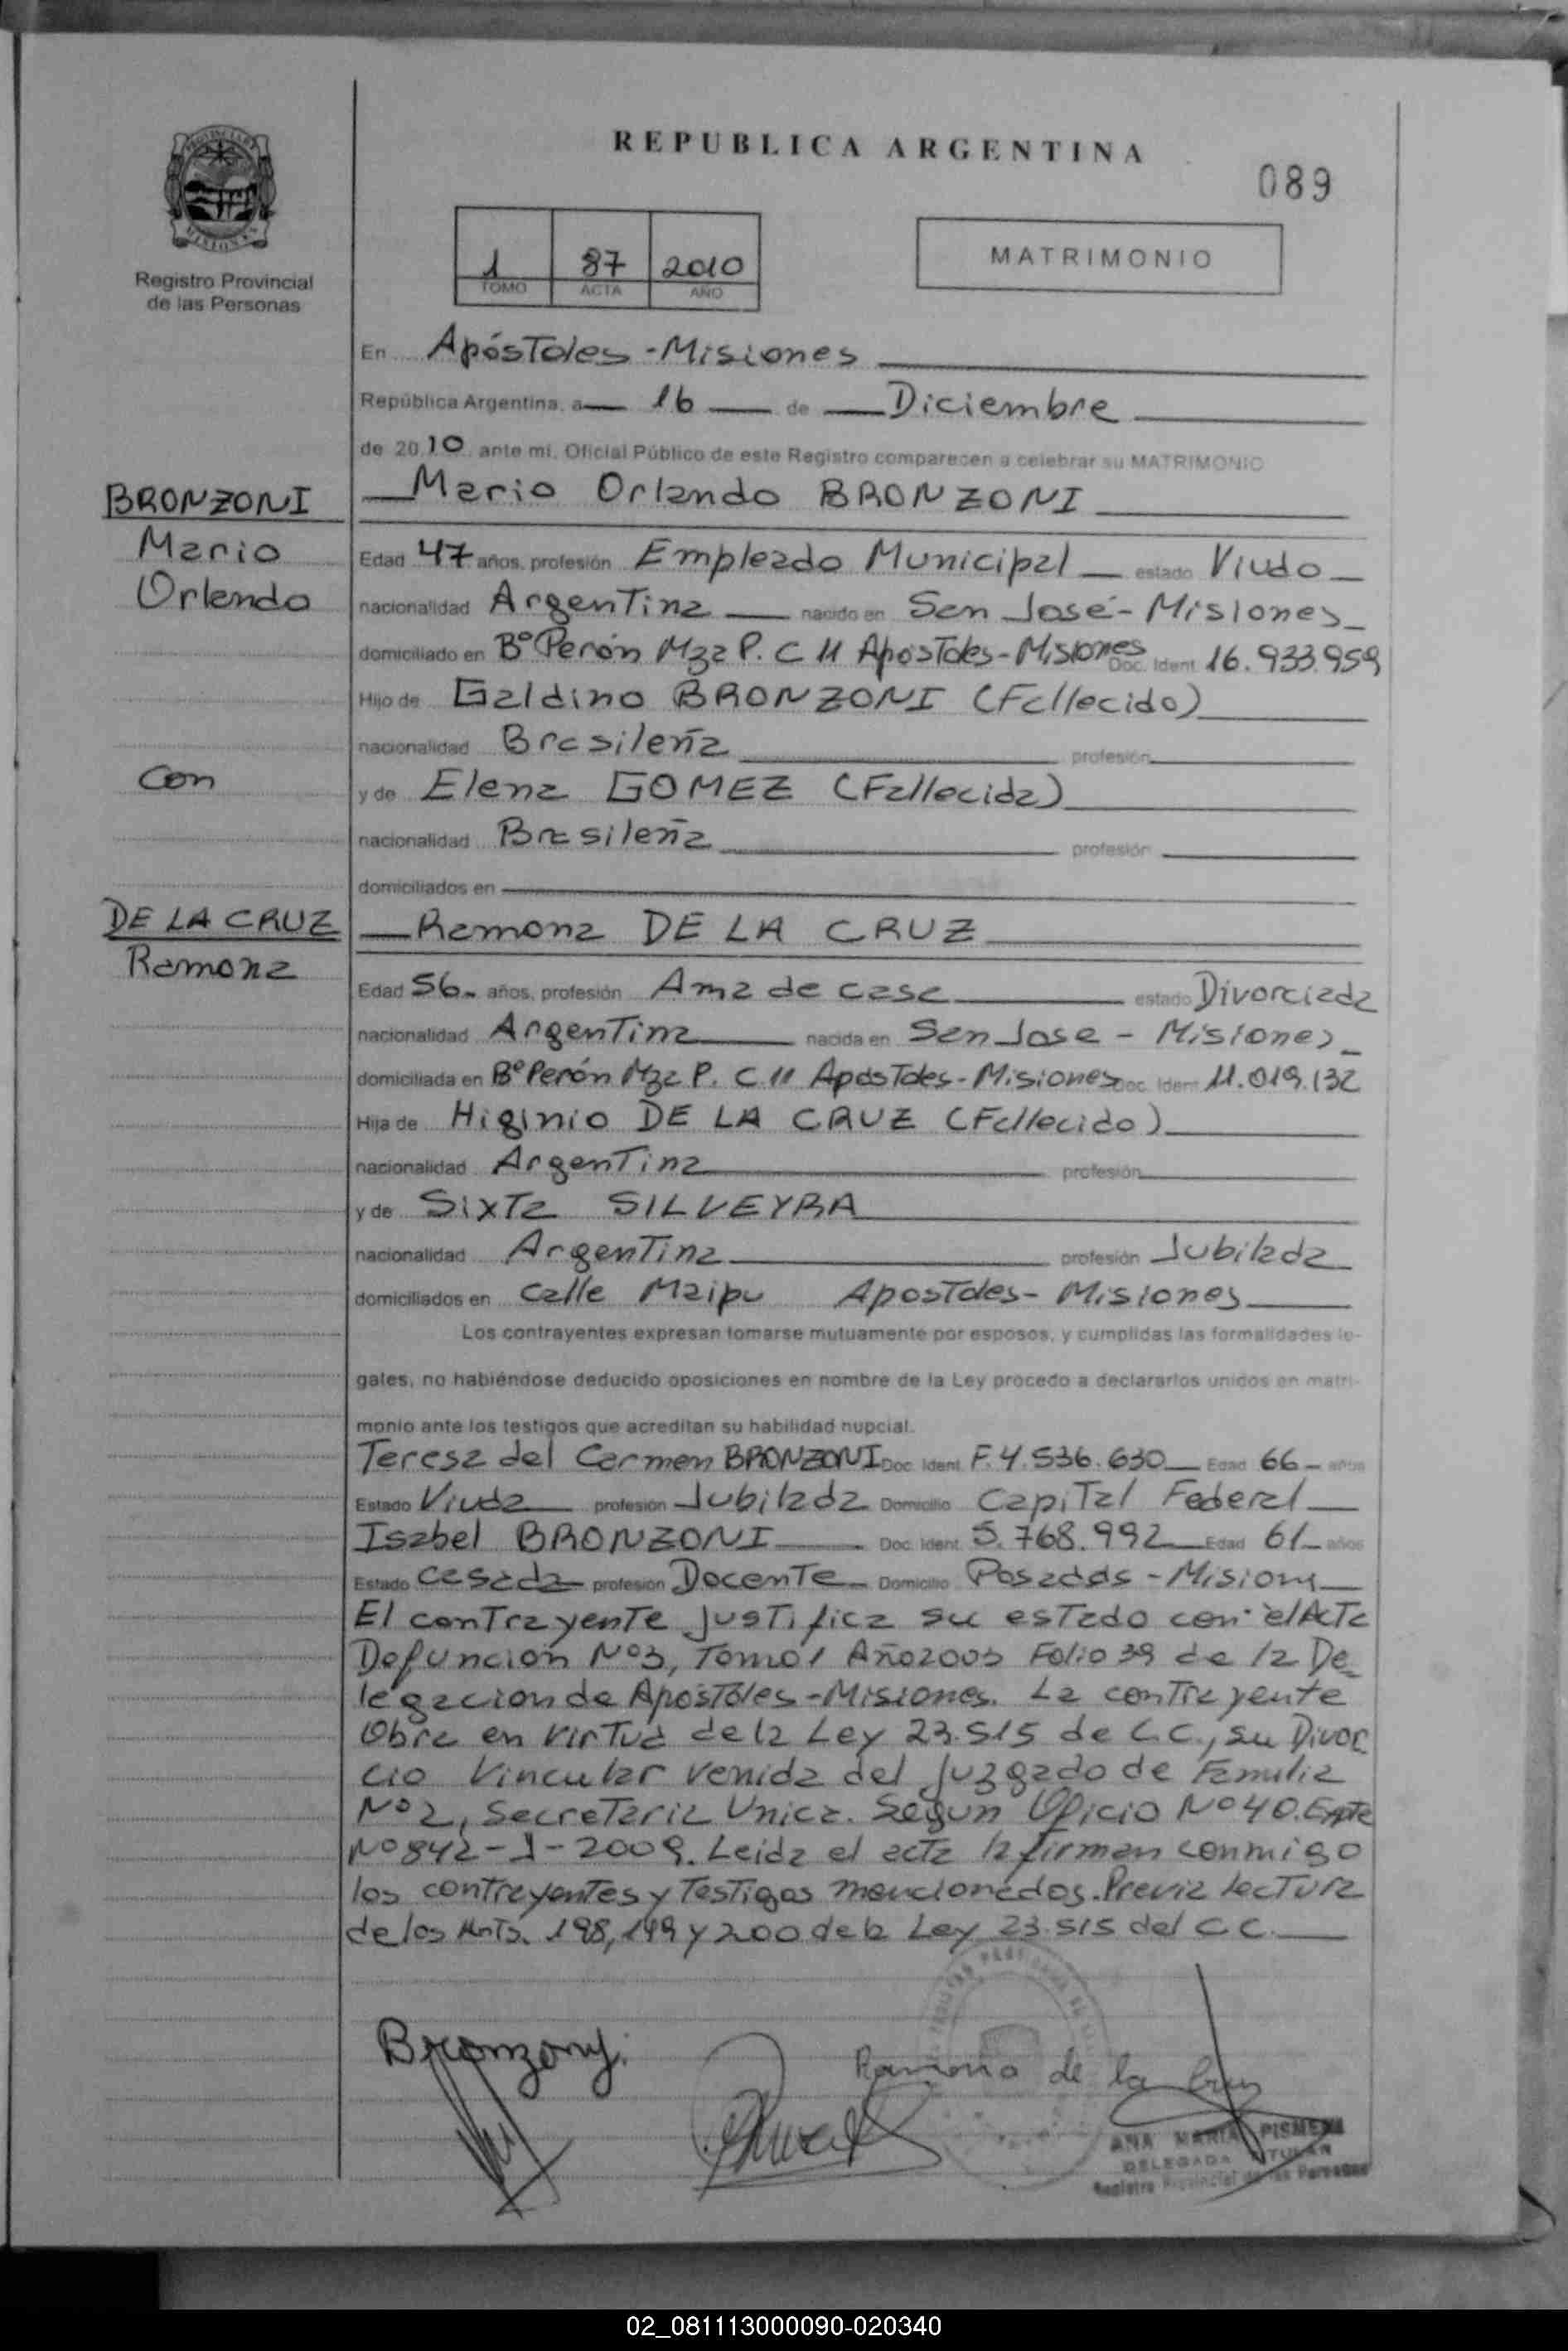 REPUBLICA ARGENTINA
089
PROVINCIA DE
MISIONES
Registro Provincial
de las Personas
1 87 2010
TOMO ACTA AÑO
MATRIMONIO
En Apóstoles - Misiones
República Argentina, a 16 de Diciembre
de 2010 ante mi, Oficial Público de este Registro comparecen a celebrar su MATRIMONIO
BRONZONI
Mario
Orlando
Con
DE LA CRUZ
Ramona
Mario Orlando BRONZONI
Edad 47 años, profesión Empleado Municipal estado Viudo
nacionalidad Argentina nacido en San José - Misiones
domiciliado en Bº Perón Mza P. C 11 Apóstoles - Misiones Doc. Ident 16.933.959
Hijo de Galdino BRONZONI (Fallecido)
nacionalidad Brasileña profesión
y de Elena GOMEZ (Fallecida)
nacionalidad Brasileña profesión
domiciliados en
Ramona DE LA CRUZ
Edad 56 años, profesión Ama de casa estado Divorciada
nacionalidad Argentina nacida en San Jose - Misiones
domiciliada en Bº Perón Mza P. C 11 Apostoles - Misiones Doc. Ident 11.019.132
Hija de Higinio DE LA CRUZ (Fallecido)
nacionalidad Argentina profesión
y de Sixta SILVEYRA
nacionalidad Argentina profesión Jubilada
domiciliados en calle Maipu Apostoles - Misiones
Los contrayentes expresan tomarse mutuamente por esposos, y cumplidas las formalidades le-
gales, no habiéndose deducido oposiciones en nombre de la Ley procedo a declararlos unidos en matri-
monio ante los testigos que acreditan su habilidad nupcial.
Teresa del Carmen BRONZONI Doc. Ident. F.4.536.630 Edad 66 años
Estado Viuda profesión Jubilada Domicilio Capital Federal
Isabel BRONZONI Doc. Ident. 5.768.992 Edad 61 años
Estado Casada profesión Docente Domicilio Posadas - Misiones
El contrayente justifica su estado con el Acta
Defunción Nº3, Tomo 1 Año 2003 Folio 39 de la De
legacion de Apóstoles - Misiones. La contrayente
Obra en virtud de la Ley 23.515 de C.C., su Divor
cio Vincular venida del Juzgado de Familia
Nº2, Secretaria Unica. Segun Oficio Nº40. Expte
Nº842-J-2009. Leida el acta la firman conmigo
los contrayentes y Testigos mencionados. Previa lectura
de los Arts. 198, 199 y 200 de la Ley 23.515 del C.C.
Bronzoni
Ramona de la Cruz
ANA MARIA
DELEGADA TITULAR
Registro Provincial de las Personas
02_081113000090-020340